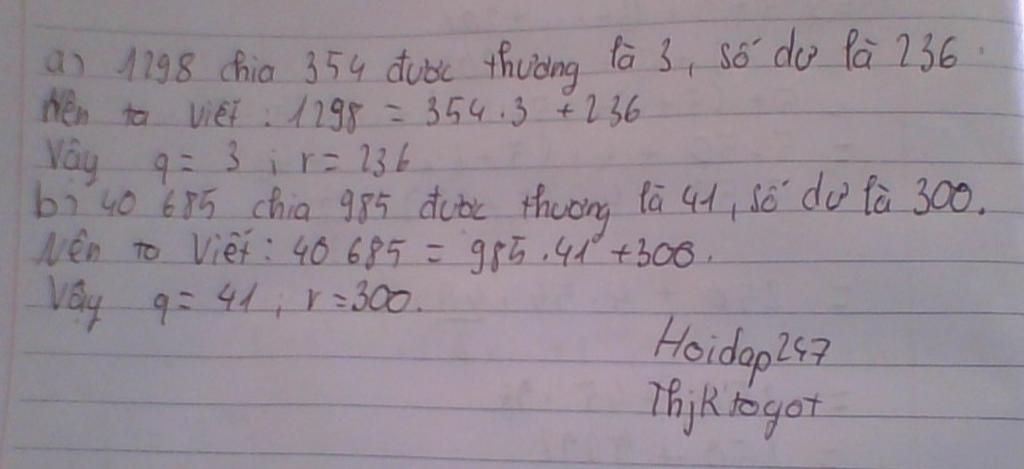 a) 1298 chia 354 được thương là 3, số dư là 236.
Nên ta viết: 1298 = 354.3 + 236
Vậy q = 3 ; r = 236
b) 40 685 chia 985 được thương là 41, số dư là 300.
Nên ta viết: 40 685 = 985.41 + 300.
Vậy q = 41 ; r = 300.
Hoidap247